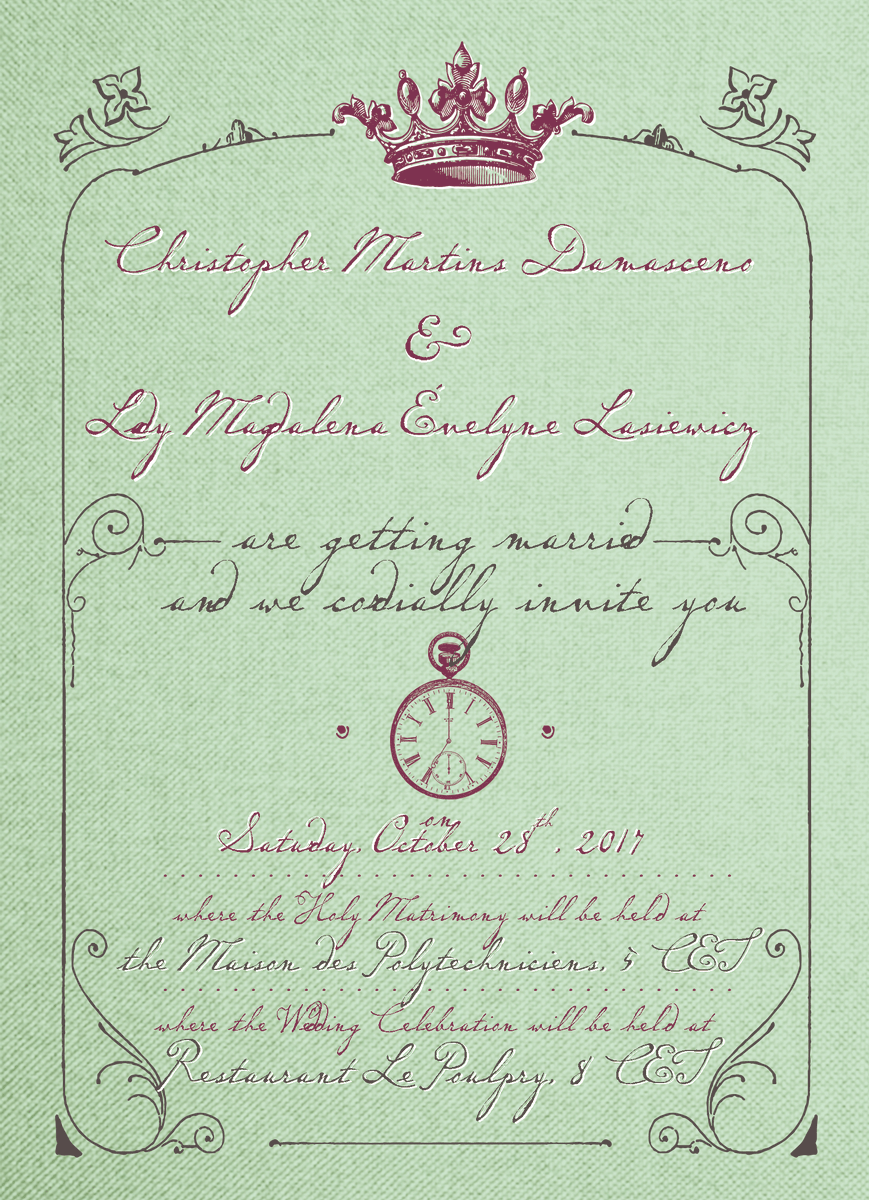 Christopher Martins Damasceno
&
Lady Magdalena Évelyne Lasiewicz
are getting married
and we cordially invite you
on
Saturday, October 28th, 2017
where the Holy Matrimony will be held at
the Maison des Polytechniciens, 5 CET
where the Wedding Celebration will be held at
Restaurant Le Poulpry, 8 CET